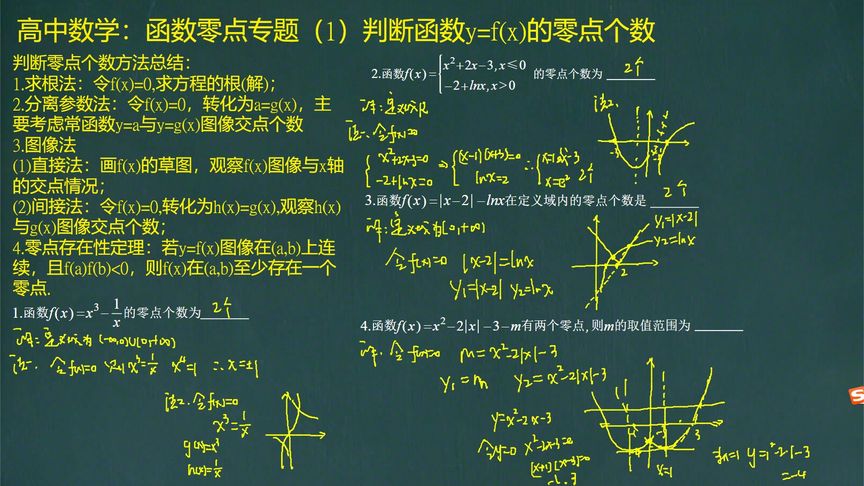 高中数学：函数零点专题（1）判断函数y=f(x)的零点个数
判断零点个数方法总结：
1.求根法：令f(x)=0,求方程的根(解)；
2.分离参数法：令f(x)=0，转化为a=g(x)，主
要考虑常函数y=a与y=g(x)图像交点个数
3.图像法
(1)直接法：画f(x)的草图，观察f(x)图像与x轴
的交点情况；
(2)间接法：令f(x)=0,转化为h(x)=g(x),观察h(x)
与g(x)图像交点个数；
4.零点存在性定理：若y=f(x)图像在(a,b)上连
续，且f(a)f(b)<0，则f(x)在(a,b)至少存在一个
零点.
1.函数f(x)=x³-1/x的零点个数为 2个
解：定义域为(-∞,0)∪(0,+∞)
法一. 令f(x)=0 则x³=1/x x⁴=1 ∴x=±1
法2. 令f(x)=0
x³=1/x
g(x)=x³
h(x)=1/x
2.函数f(x)={x²+2x-3,x≤0
-2+lnx,x>0 的零点个数为 2个
解：定义域R
法一. 令f(x)=0
{x²+2x-3=0 ⇒ {(x-1)(x+3)=0
-2+lnx=0 lnx=2
2个
法2.
3.函数f(x)=|x-2|-lnx在定义域内的零点个数是 2个
解：定义域为(0,+∞)
令f(x)=0 |x-2|=lnx
y₁=|x-2| y₂=lnx
y₁=|x-2|
y₂=lnx
2
4.函数f(x)=x²-2|x|-3-m有两个零点,则m的取值范围为
解. 令f(x)=0 m=x²-2|x|-3
y₁=m y₂=x²-2|x|-3
y=x²-2x-3
令y=0 x²-2x-3=0
(x+1)(x-3)=0
-1. 3
3
x=1
y=1²-2·1-3
=-4